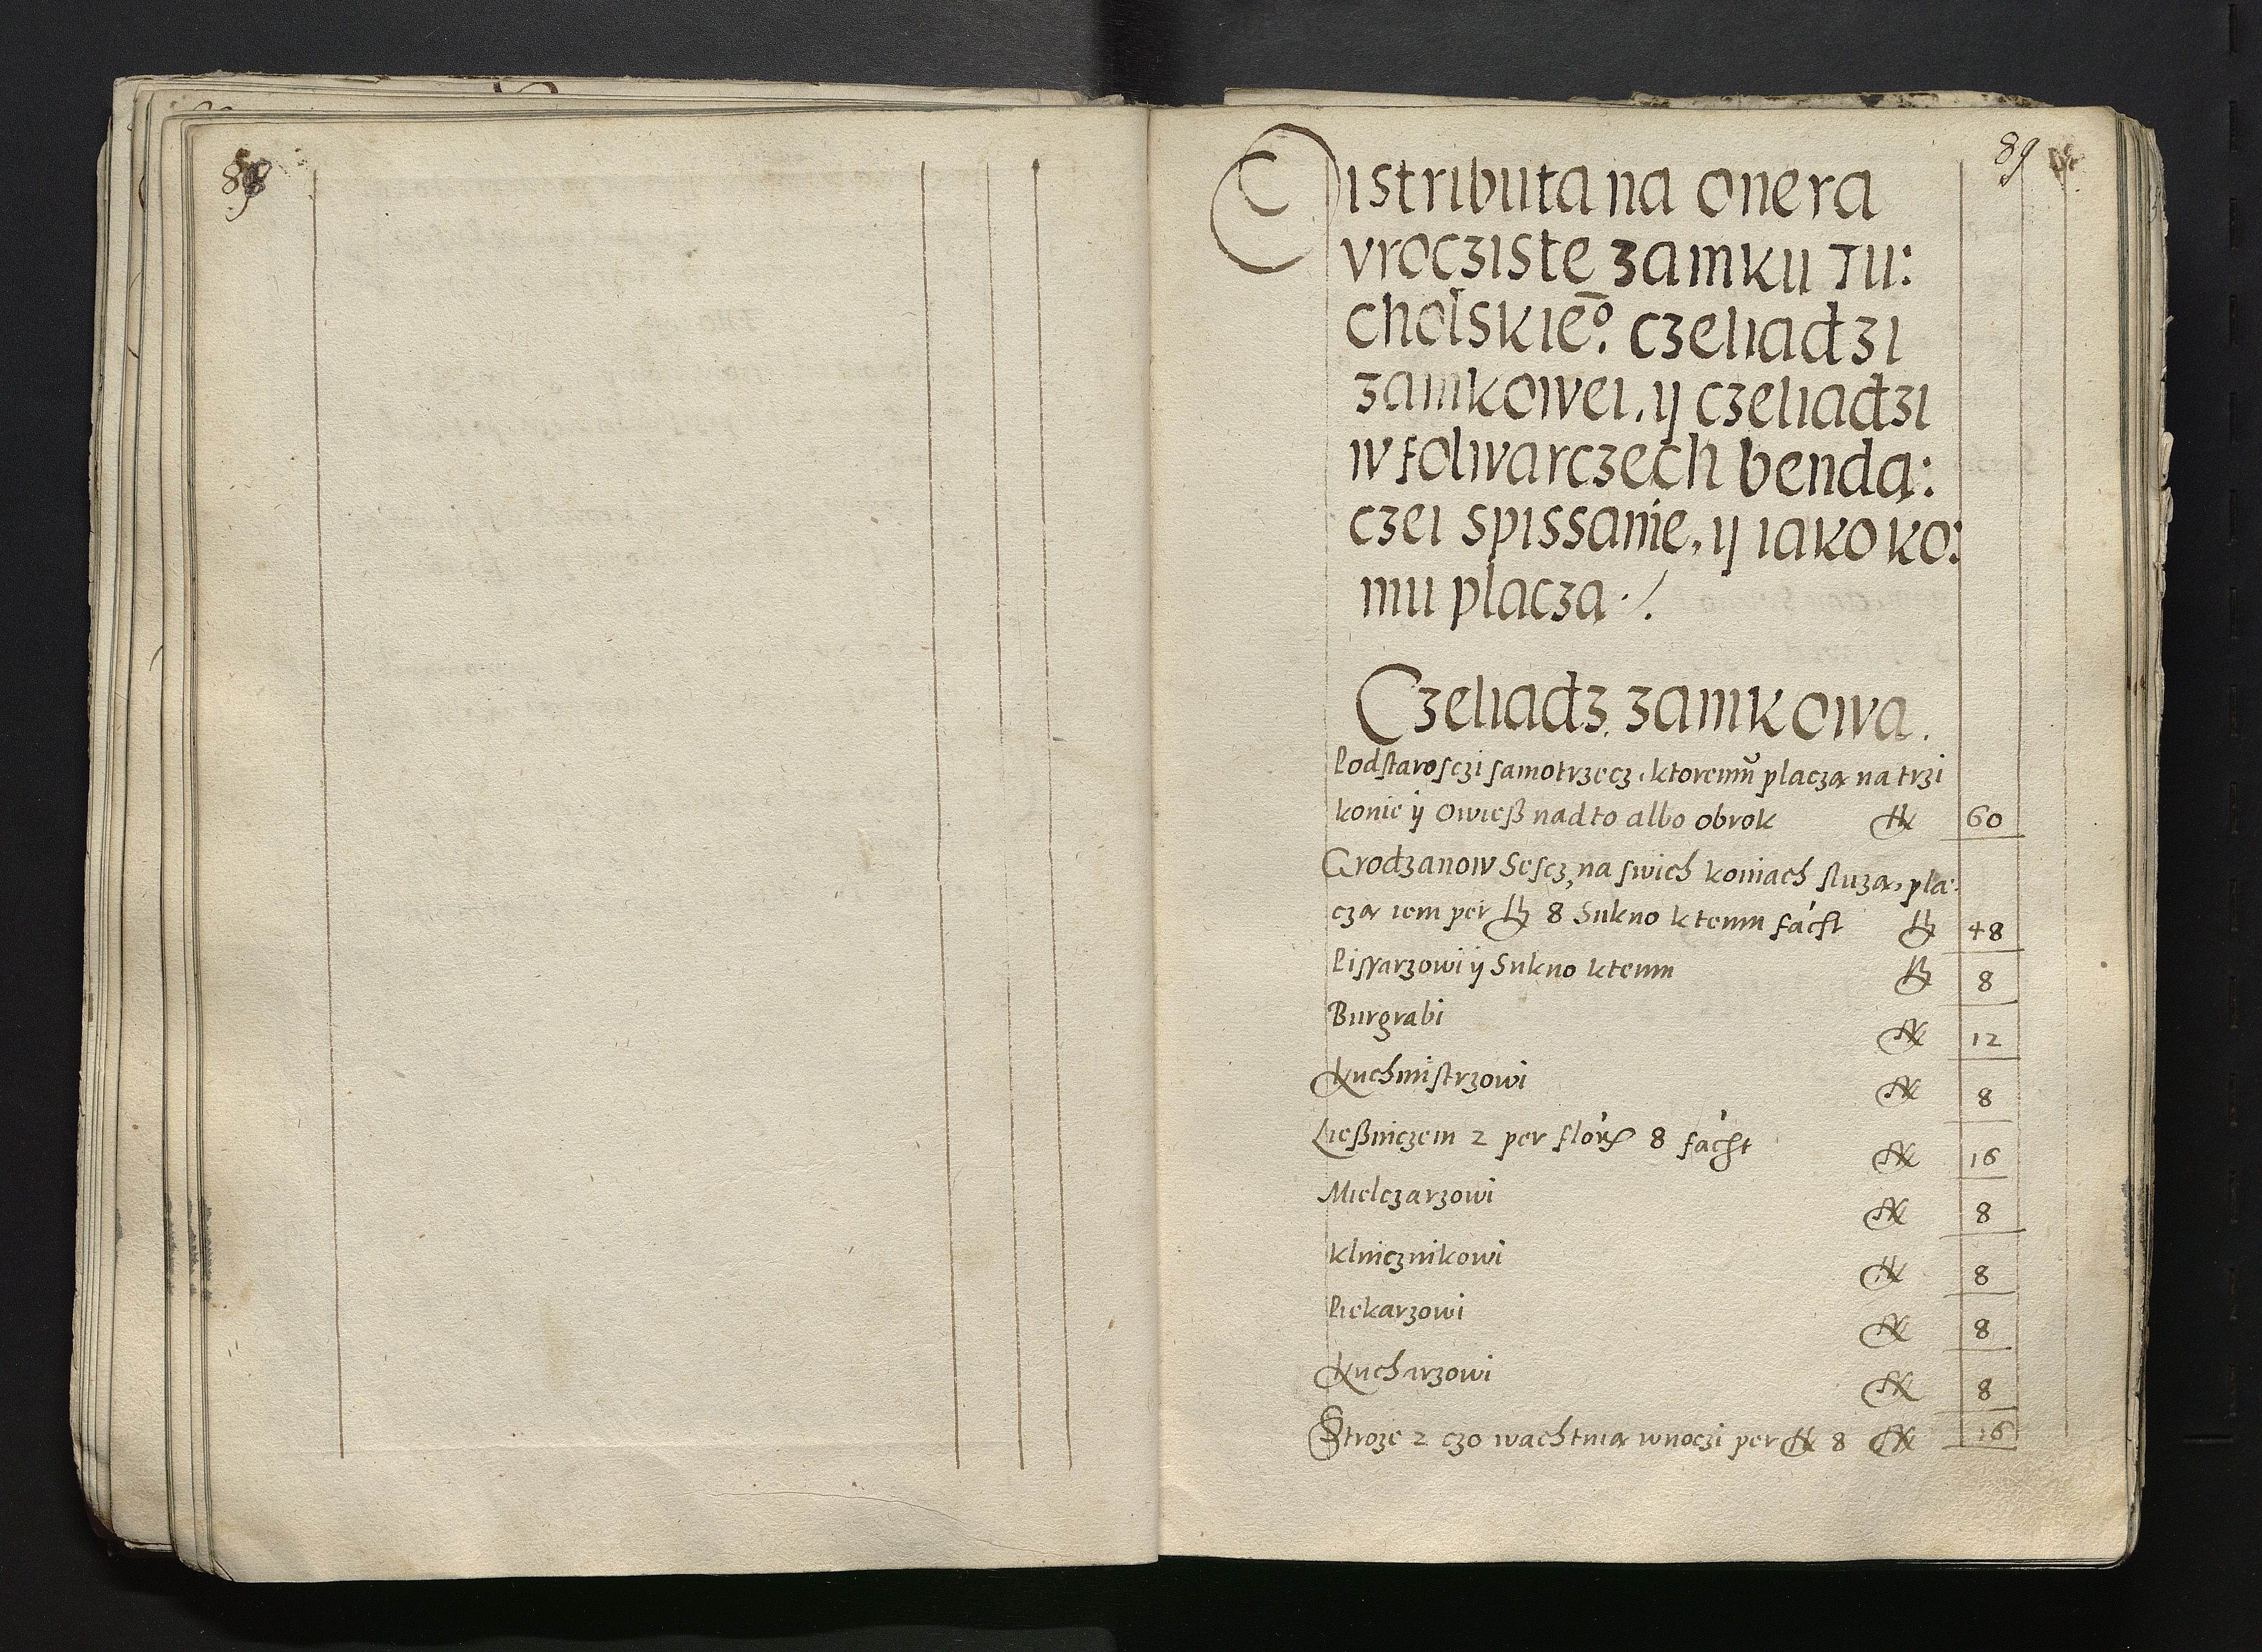 88
89
Distributa na onera
vrocziste zamku Tu:
cholskieº. czeliadzi
zamkowei, ÿ czeliadzi
w folwarczech benda:
czei spissanie, ÿ iako ko:
mu placza ./.
Czeliadz zamkowa.
Podstarosczi samotrzecz, ktoremu placzą na trzi
konie ÿ owieß nad to albo obrok fl 60
Grodzanow Sescz, na swich koniach sluzą, pla:
czą iem per fl 8 Sukno k temu fácst fl 48
Pissarzowi ÿ Sukno ktemu fl 8
Burgrabi fl 12
Kuchmistrzowi fl 8
Ließniczem 2 per flor 8 fácst fl 16
Mielczarzowi fl 8
Klucznikowi fl 8
Piekarzowi fl 8
Kucharzowi fl 8
Stroze 2 czo wachtuią wnoczi per fl 8 fl 16